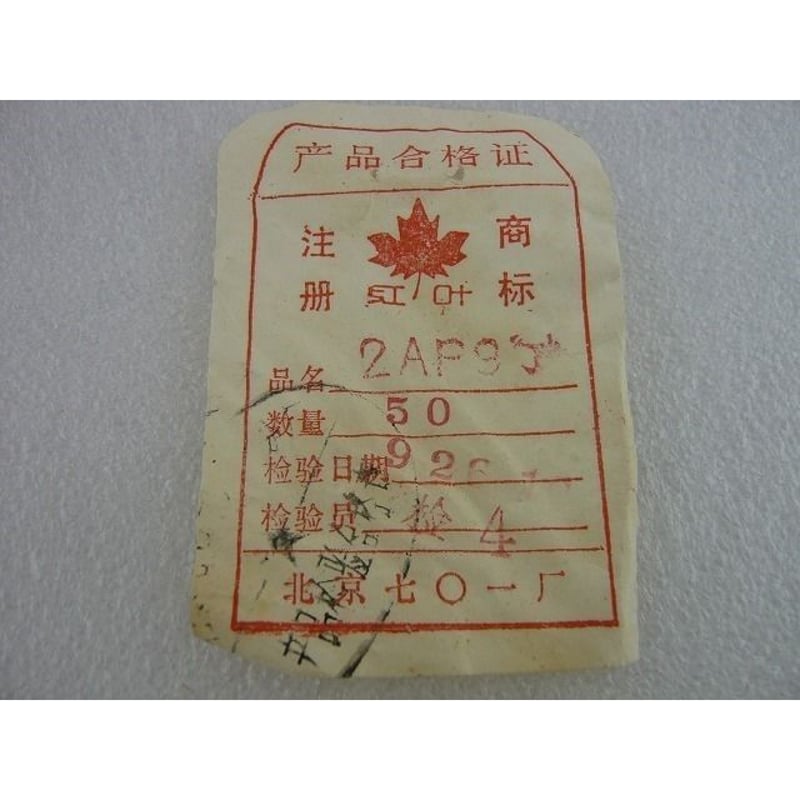 产品合格证
注册 商标
红叶
品名 2AP9
数量 50
检验日期 926
检验员 检4
北京七〇一厂